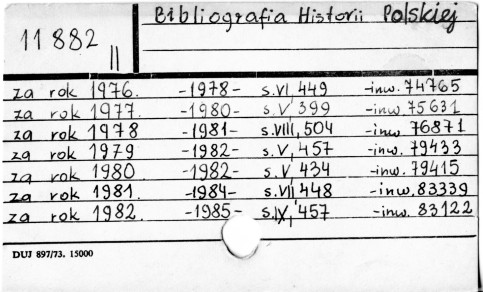 Bibliografia Historii Polskiej
11 882
II
za rok 1976. -1978- s.VI, 449 -inw. 74765
za rok 1977. -1980- s.V, 399 -inw. 75631
za rok 1978 -1981- s.VIII, 504 -inw. 76871
za rok 1979 -1982- s.V, 457 -inw. 79433
za rok 1980 -1982- s.V, 434 -inw. 79415
za rok 1981. -1984- s.VII, 448 -inw. 83339
za rok 1982. -1985- s.IX, 457 -inw. 83122
DUJ 897/73. 15000